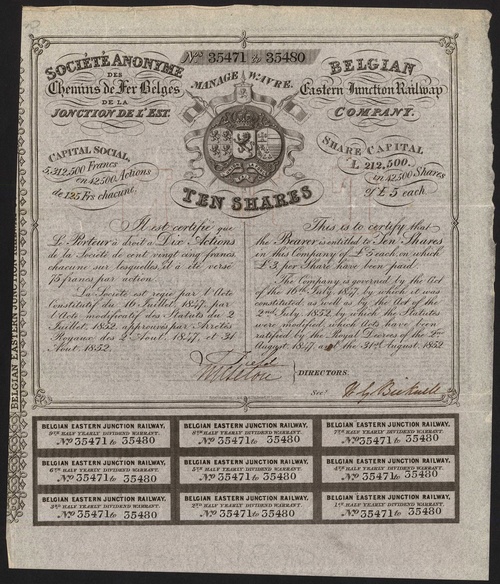 Nos 35471 to 35480
SOCIÉTÉ ANONYME
DES
Chemins de Fer Belges
DE LA
JONCTION DE L'EST.
MANAGE WAVRE.
BELGIAN
Eastern Junction Railway
COMPANY.
CAPITAL SOCIAL,
5,312,500 Francs
en 42500 Actions
de 125 Frs chacune.
SHARE CAPITAL
£ 212,500.
in 42500 Shares
of £5 each.
TEN SHARES
Il est certifié que
Le Porteur a droit à Dix Actions
de la Société de cent vingt cinq francs
chacune sur lesquelles il a été versé
75 francs par action.
La Société est régie par l'Acte
Constitutif du 16 Juillet, 1847, par
l'Acte modificatif des Statuts du 2
Juillet, 1852, approuvés par Arrêtés
Royaux des 2 Aout, 1847, et 31
Aout, 1852.
This is to certify that
the Bearer is entitled to Ten Shares
in this Company of £5 each, on which
£3, per Share have been paid.
The Company is governed by the Act
of the 16th July, 1847, by which it was
constituted, as well as by the Act of the
2nd July, 1852, by which the Statutes
were modified, which Acts have been
ratified by the Royal Decrees of the 2nd
August, 1847, and the 31st August, 1852.
DIRECTORS.
Secy.
BELGIAN EASTERN JUNCTION
BELGIAN EASTERN JUNCTION RAILWAY,
9th HALF YEARLY DIVIDEND WARRANT.
No 35471 to 35480
BELGIAN EASTERN JUNCTION RAILWAY,
8th HALF YEARLY DIVIDEND WARRANT.
No 35471 to 35480
BELGIAN EASTERN JUNCTION RAILWAY,
7th HALF YEARLY DIVIDEND WARRANT.
No 35471 to 35480
BELGIAN EASTERN JUNCTION RAILWAY,
6th HALF YEARLY DIVIDEND WARRANT.
No 35471 to 35480
BELGIAN EASTERN JUNCTION RAILWAY,
5th HALF YEARLY DIVIDEND WARRANT.
No 35471 to 35480
BELGIAN EASTERN JUNCTION RAILWAY,
4th HALF YEARLY DIVIDEND WARRANT.
No 35471 to 35480
BELGIAN EASTERN JUNCTION RAILWAY,
3rd HALF YEARLY DIVIDEND WARRANT.
No 35471 to 35480
BELGIAN EASTERN JUNCTION RAILWAY,
2nd HALF YEARLY DIVIDEND WARRANT.
No 35471 to 35480
BELGIAN EASTERN JUNCTION RAILWAY,
1st HALF YEARLY DIVIDEND WARRANT.
No 35471 to 35480